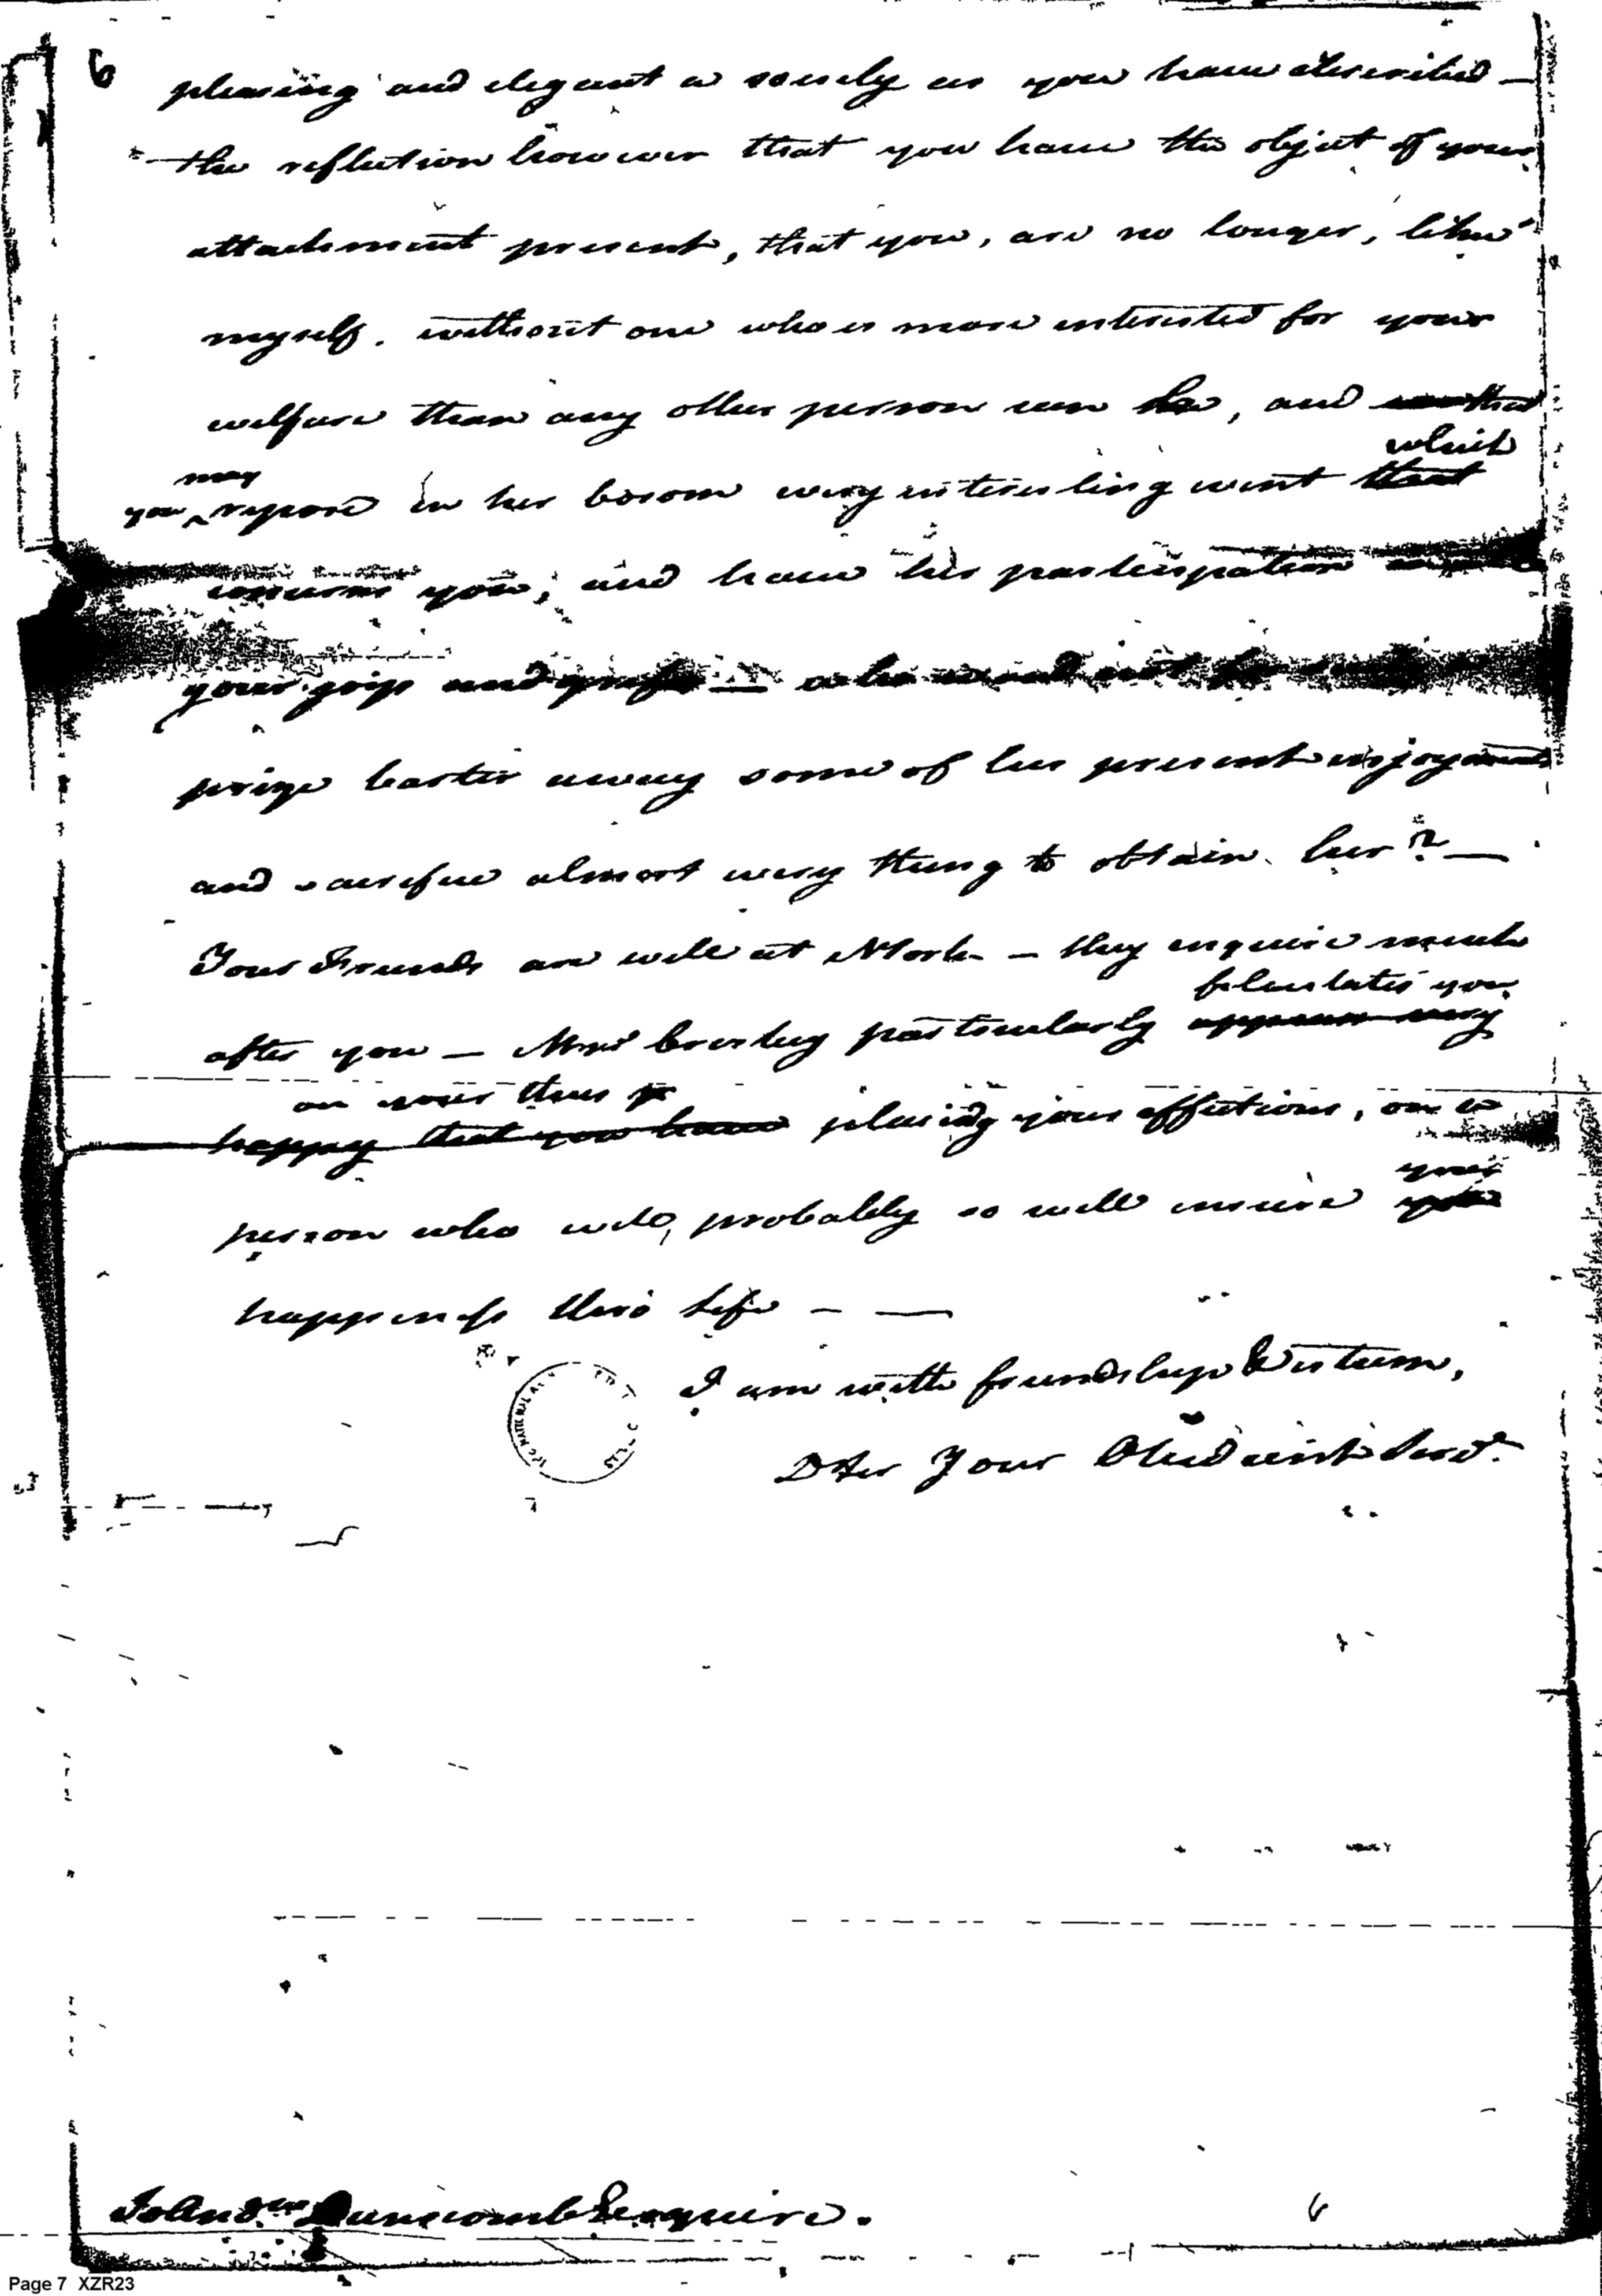 6
pleasing and elegant a society as you have described —
the reflection however that you have the object of your
attachment present, that you, are no longer, like
myself. without one who is more interested for your
welfare than any other person can be, and that
which
may
you repose in her bosom every interesting event that
concerns you; and have her participation
your joys and griefs — who would not for such a
prize barter away some of his present enjoyments
and sacrifice almost every thing to obtain her? —
Your Friends are well at York — they enquire much
felicitates you
after you — Mrs particularly appears very
on your thus
happy that you have placing your affections, on a
your
person who will, probably so well insure you
happiness thro life — —
I am with friendship & esteem,
D Sir Your Obedient Servt.
To Andw. Dunscomb Esquire.
6
Page 7 XZR23